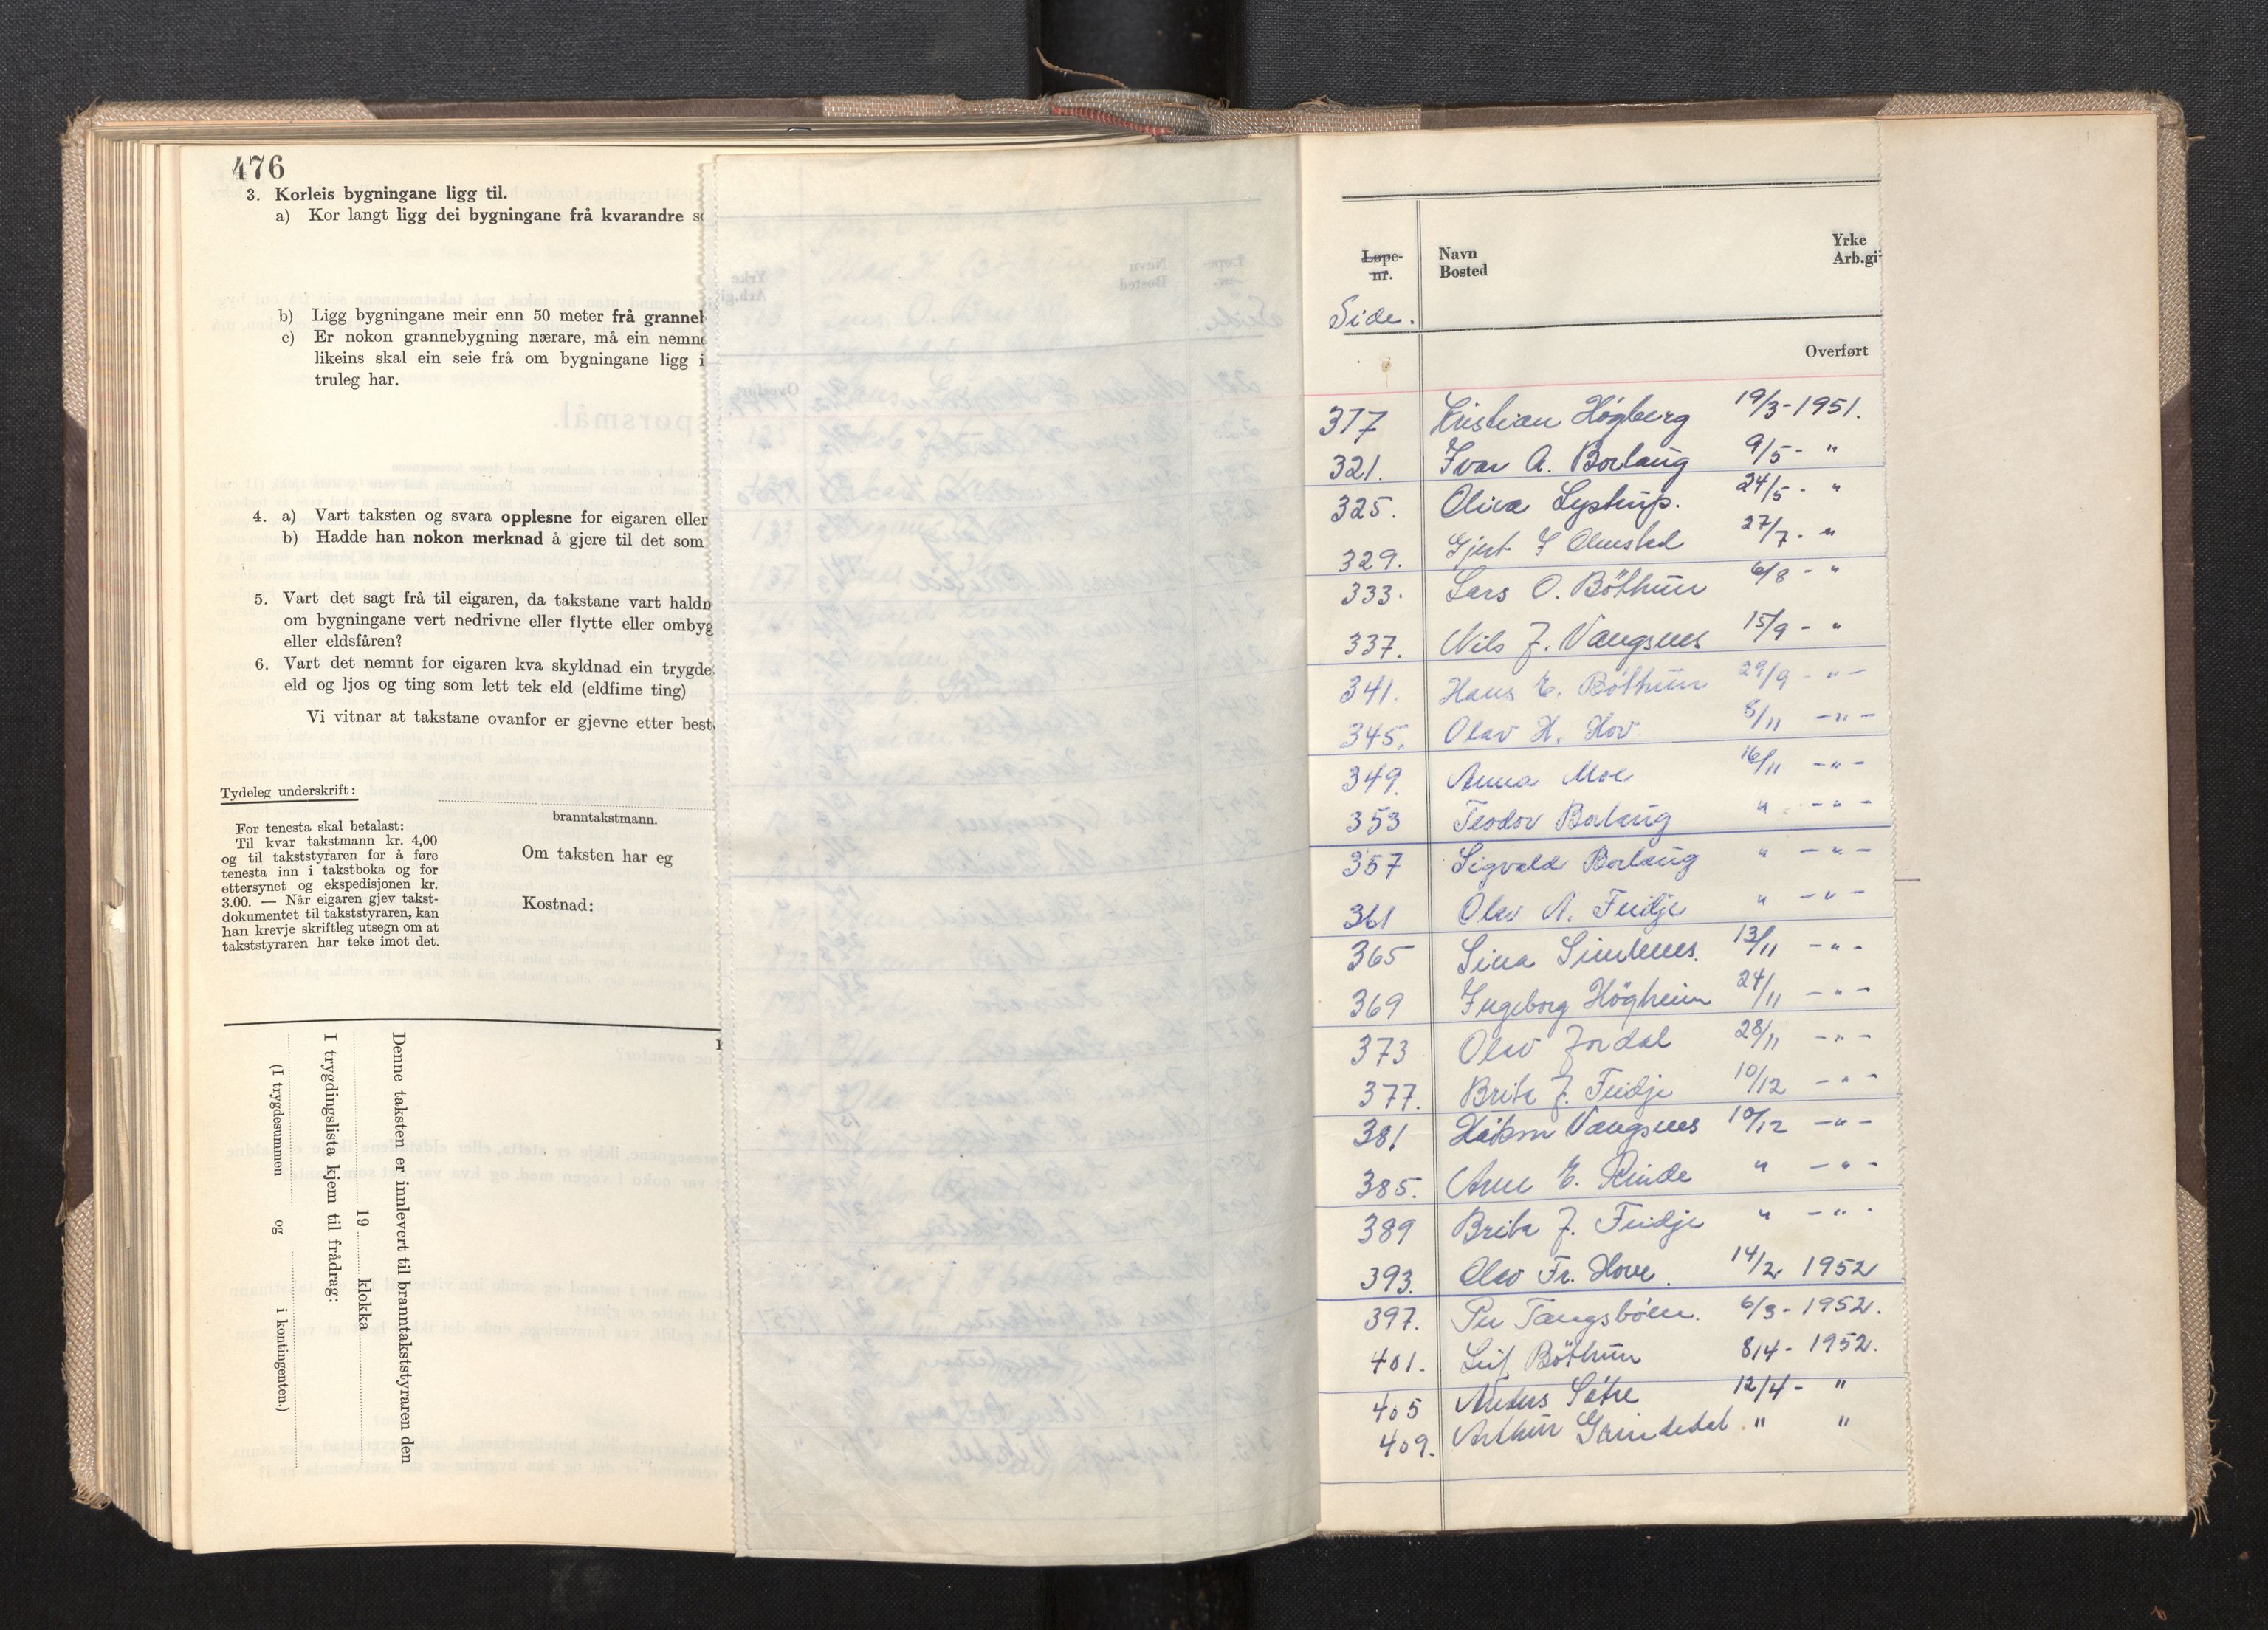 476
3. Korleis bygningane ligg til.
a) Kor langt ligg dei bygningane frå kvarandre
b) Ligg bygningane meir enn 50 meter frå
c) Er nokon grannebygning nærare, må ein
likeins skal ein seie frå om bygningane ligg i
truleg har.
4. a) Vart taksten og svara opplesne for eigaren eller
b) Hadde han nokon merknad å gjere til det som
5. Vart det sagt frå til eigaren, da takstane vart
om bygningane vert nedrivne eller flytte eller
eller eldsfåren?
6. Vart det nemnt for eigaren kva skyldnad ein
eld og ljos og ting som lett tek eld (eldfime ting)
Vi vitnar at takstane ovanfor er gjevne etter
Tydeleg underskrift:
branntakstmann.
For tenesta skal betalast:
Til kvar takstmann kr. 4,00
og til takststyraren for å føre
tenesta inn i takstboka og for
ettersynet og ekspedisjonen kr.
3.00. — Når eigaren gjev takst-
dokumentet til takststyraren, kan
han krevje skriftleg utsegn om at
takststyraren har teke imot det.
Om taksten har eg
Kostnad:
Denne taksten er innlevert til branntakststyraren den
19 klokka
I trygdingslista kjem til frådrag:
(I trygdesummen og i kontingenten.)
Løpe-
nr.
Side.
Navn
Bosted
Yrke
Arb.gi
Overført
377 Kristian Høgberg 19/3-1951.
321. Ivar A. Borlaug 9/5- "
325. Oliva Lystrup. 24/5- "
329. Gjert I Olmsted 27/7- "
333. Lars O. Böthun 6/8- "
337. Nils J. Vangsnes 15/9- "
341. Hans E. Böthun 29/9- " -
345. Olav H. Hov 8/11 - " -
349. Anna Moe 16/11 - " -
353 Teodor Borlaug " - " -
357 Sigvald Borlaug " - " -
361 Olav A. Feidje " - " -
365 Sina Simlenes. 13/11 - " -
369 Ingeborg Högheim 24/11 - " -
373 Olav Jordal 28/11 - " -
377. Brita J. Feidje 10/12 - " -
381 Håkon Vangsnes 10/12 - " -
385. Arne E. Rinde " - " -
389 Brita J. Feidje " - " -
393. Olav Fr. Hove. 14/2 1952
397. Per Tangsbölen. 6/3- 1952.
401. Leif Böthun 8/4- 1952.
405 Anders Sätre 12/4- "
409. Arthur Grindedal. " "